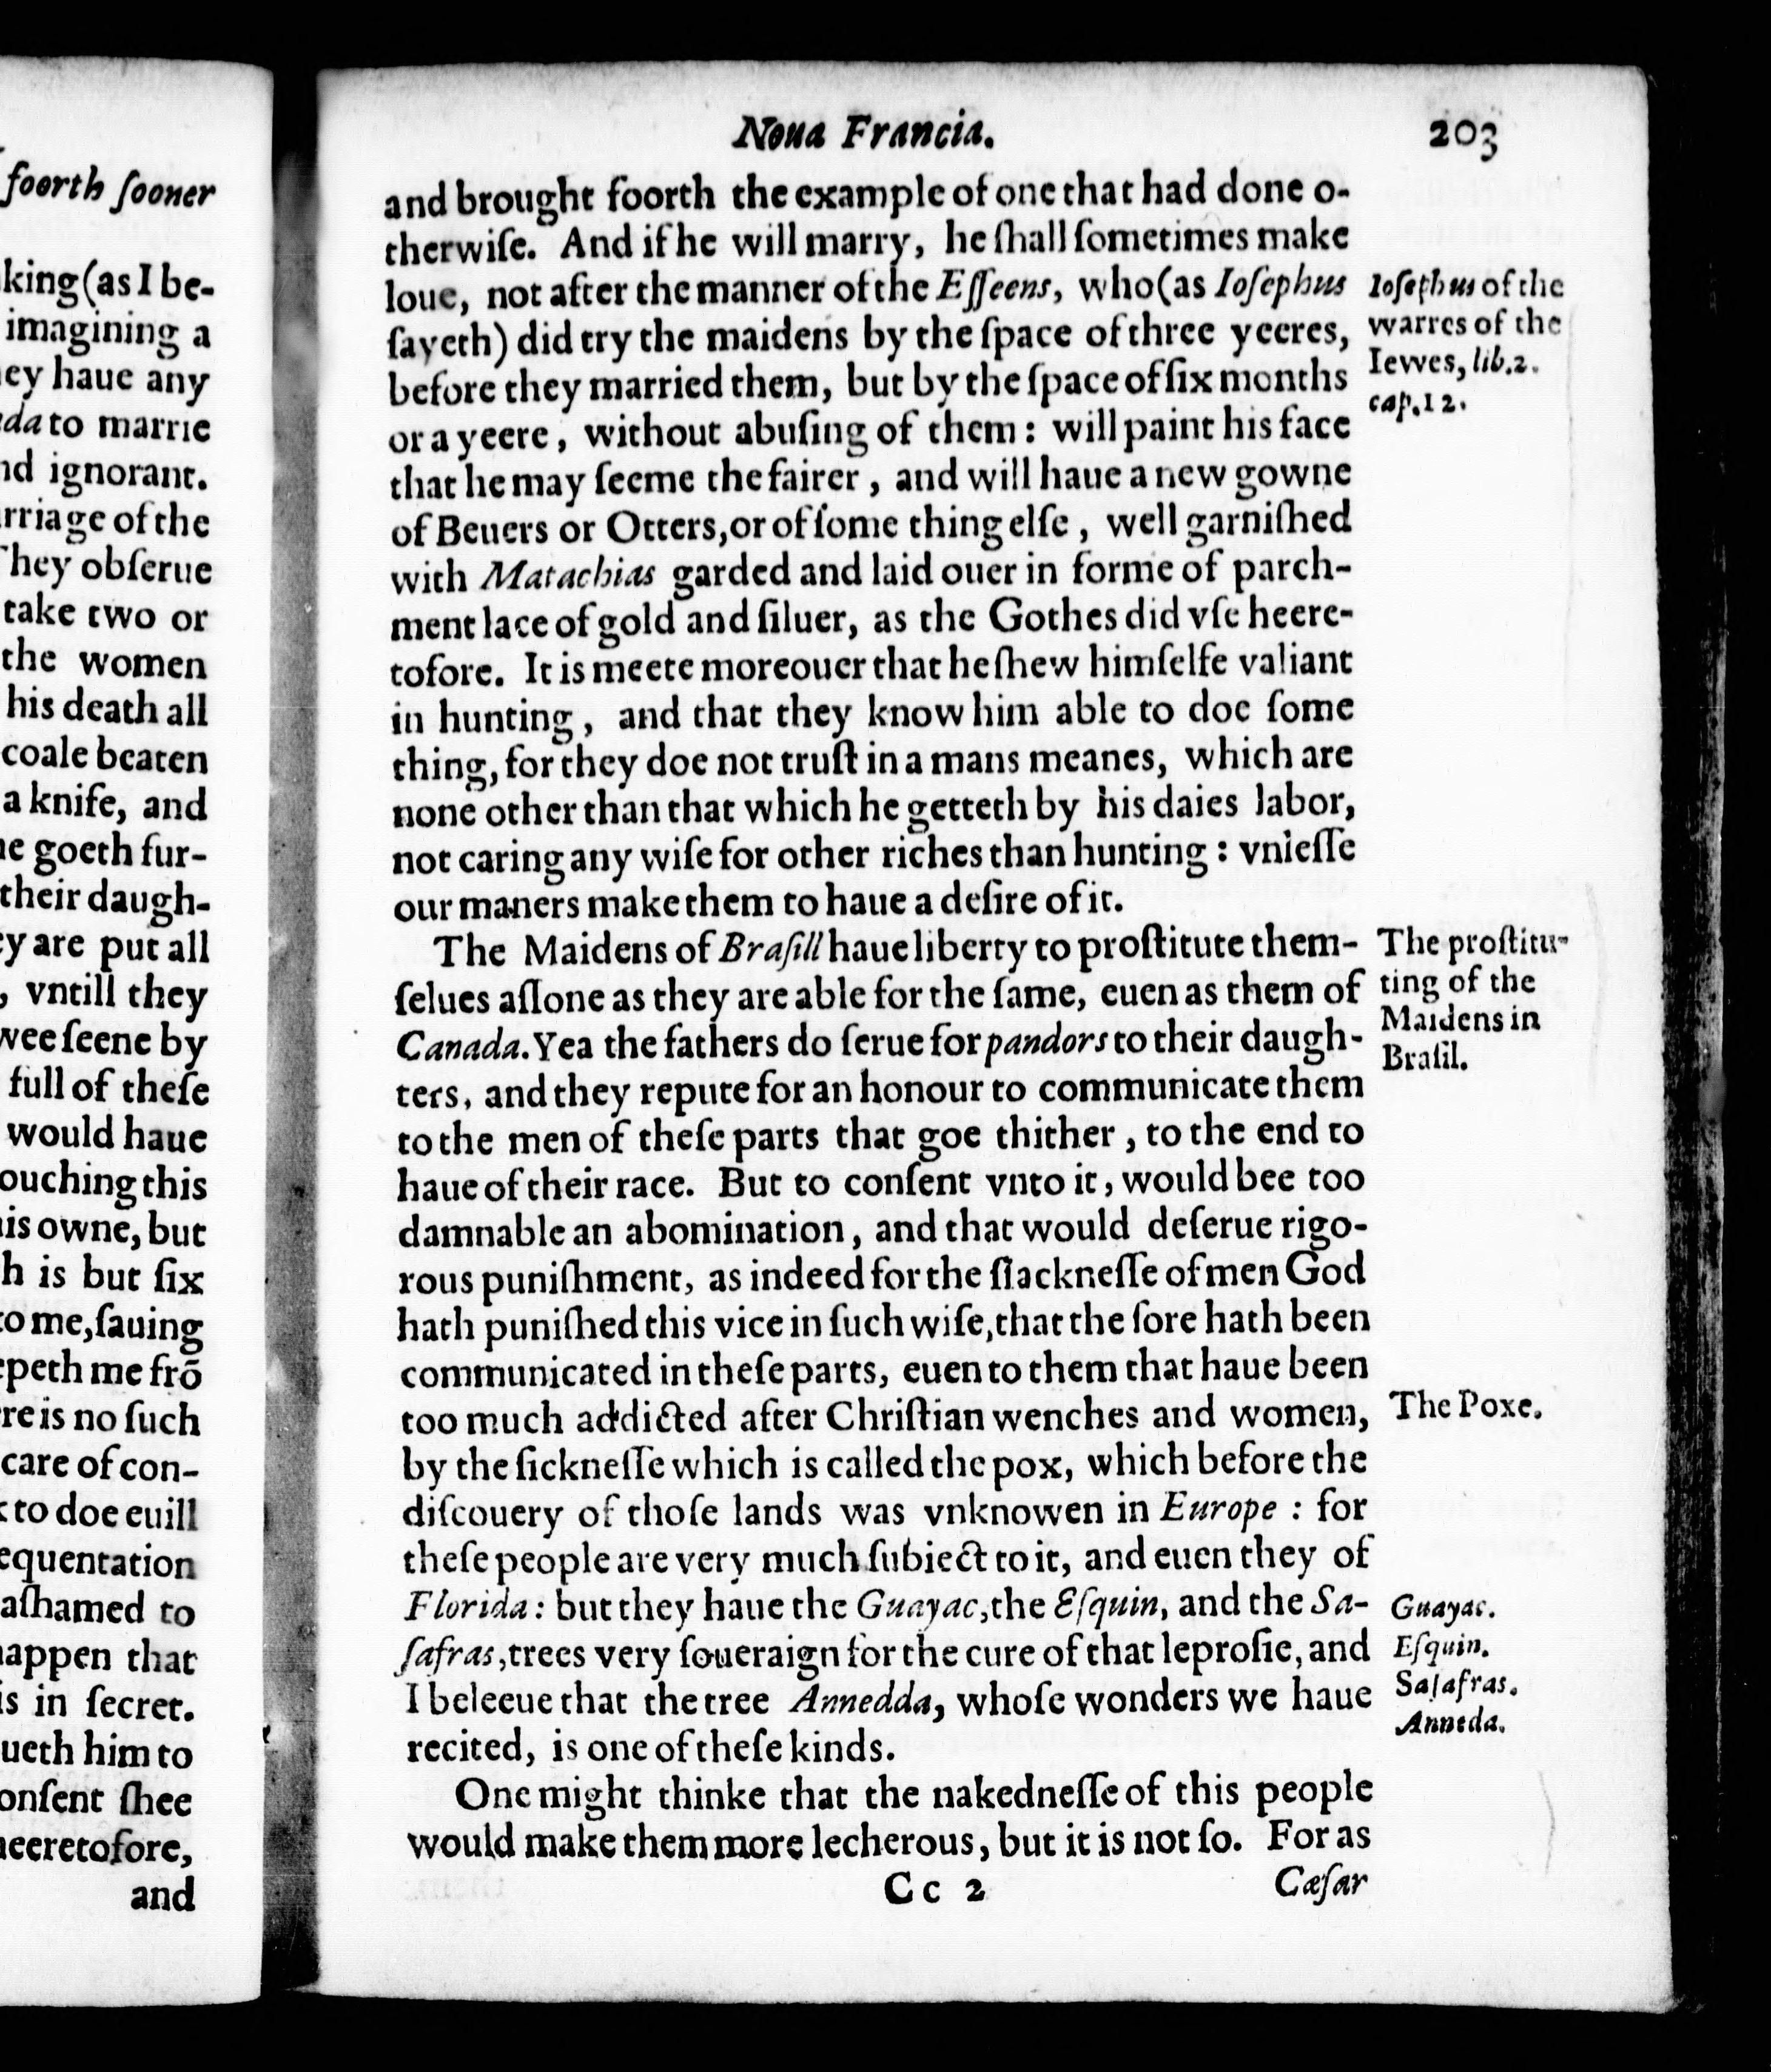 foorth ſooner
king (as I be-
imagining a
ey haue any
da to marrie
nd ignorant.
rriage of the
They obſerue
take two or
the women
his death all
coale beaten
a knife, and
ne goeth fur-
their daugh-
ey are put all
, vntill they
wee ſeene by
full of theſe
would haue
ouching this
is owne, but
h is but ſix
to me, ſauing
epeth me frõ
re is no ſuch
care of con-
to doe euill
equentation
aſhamed to
happen that
is in ſecret.
ueth him to
onſent ſhee
heeretofore,
and
Noua Francia.
203
and brought foorth the example of one that had done o-
therwiſe. And if he will marry, he ſhall ſometimes make
loue, not after the manner of the Eſſeens, who (as Ioſephus
ſayeth) did try the maidens by the ſpace of three yeeres,
before they married them, but by the ſpace of ſix months
or a yeere, without abuſing of them: will paint his face
that he may ſeeme the fairer, and will haue a new gowne
of Beuers or Otters, or of ſome thing elſe, well garniſhed
with Matachias garded and laid ouer in forme of parch-
ment lace of gold and ſiluer, as the Gothes did vſe heere-
tofore. It is meete moreouer that he ſhew himſelfe valiant
in hunting, and that they know him able to doe ſome
thing, for they doe not truſt in a mans meanes, which are
none other than that which he getteth by his daies labor,
not caring any wiſe for other riches than hunting: vnleſſe
our maners make them to haue a deſire of it.
Ioſephus of the
warres of the
Iewes, lib. 2.
cap. 12.
The Maidens of Braſill haue liberty to proſtitute them-
ſelues aſſone as they are able for the ſame, euen as them of
Canada. Yea the fathers do ſerue for pandors to their daugh-
ters, and they repute for an honour to communicate them
to the men of theſe parts that goe thither, to the end to
haue of their race. But to conſent vnto it, would bee too
damnable an abomination, and that would deſerue rigo-
rous puniſhment, as indeed for the ſlackneſſe of men God
hath puniſhed this vice in ſuch wiſe, that the ſore hath been
communicated in theſe parts, euen to them that haue been
too much addicted after Chriſtian wenches and women,
by the ſickneſſe which is called the pox, which before the
diſcouery of thoſe lands was vnknowen in Europe: for
theſe people are very much ſubiect to it, and euen they of
Florida: but they haue the Guayac, the Eſquin, and the Sa-
ſafras, trees very ſoueraign for the cure of that leproſie, and
I beleeue that the tree Annedda, whoſe wonders we haue
recited, is one of theſe kinds.
The proſtitu-
ting of the
Maidens in
Braſil.
The Poxe.
Guayac.
Eſquin.
Saſafras.
Anneda.
One might thinke that the nakedneſſe of this people
would make them more lecherous, but it is not ſo. For as
Cc 2
Cæſar